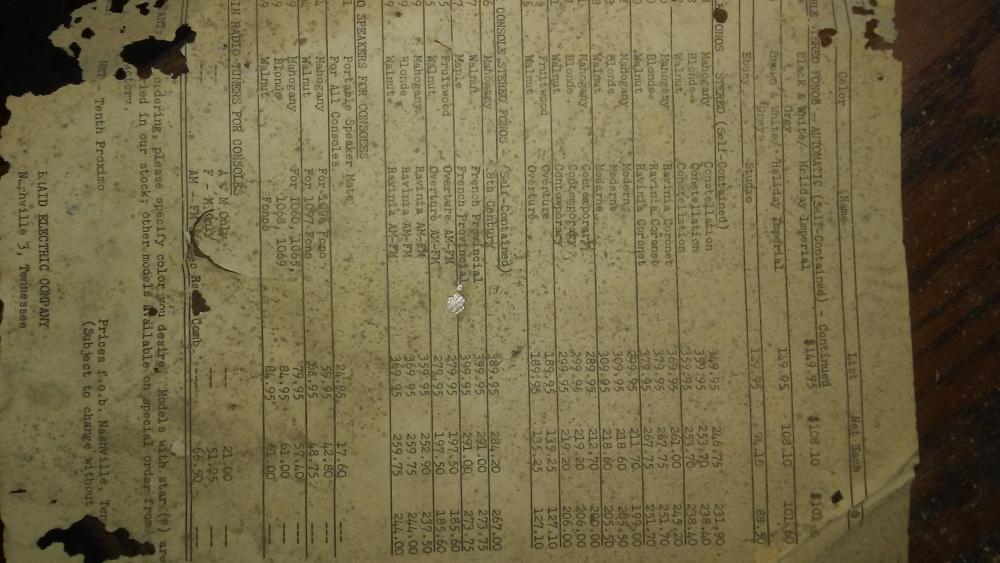 Color Name List Net Each
FONOS - AUTOMATIC (Self-Contained) - Continued
Black & White/ Holiday Imperial $149.95 $108.10
Gray
Brown & White/ Holiday Imperial 149.95 108.10 101.60
Grey
Ebony Studio 129.95 94.10 88.50
FONOS STEREO (Self Contained)
Mahogany Constellation 349.95 246.75 231.90
Blonde Constellation 359.95 253.70 238.40
Walnut Constellation 369.95 261.00 245.20
Mahogany Ravinia Coronet 379.95 267.75 251.70
Blonde Ravinia Coronet 379.95 267.75 251.70
Walnut Ravinia Coronet 299.95 211.70 199.00
Mahogany Modern 309.95 218.60 205.50
Blonde Moderne 309.95 218.60 205.50
Walnut Moderne 299.95 212.70 200.00
Mahogany Contemporary 299.95 219.20 206.00
Blonde Contemporary 299.95 219.20 206.00
Walnut Contemporary 299.95 219.20 206.00
Fruitwood Overture 189.95 139.25 127.10
Walnut Overture 189.95 135.25 127.10
CONSOLE STEREO FONOS (Self-Contained)
Mahogany 18th Century 389.95 284.20 267.00
Walnut French Provincial 399.95 291.00 273.75
Maple French Provincial 399.95 291.00 273.75
Fruitwood Overture AM-FM 279.95 197.50 185.60
Walnut Overture AM-FM 279.95 197.50 185.60
Mahogany Ravinia AM-FM 359.95 252.90 237.50
Blonde Ravinia AM-FM 369.95 259.75 244.00
Walnut Ravinia AM-FM 369.95 259.75 244.00
SPEAKERS FOR CONSOLES
Portable Speaker Mate 24.85 17.60 ---
For All Consoles
Mahogany For Fono 59.95 42.80 ---
Walnut For 1097 Fono 68.95 48.75 ---
Mahogany For 1060, 1065, 79.95 57.40 ---
Blonde 1068, 1069 84.95 61.00 ---
Walnut Fono 84.95 61.00 ---
IN RADIO TUNERS FOR CONSOLES
A - M Only --- 21.00 ---
F - M Only --- 51.95 ---
AM - FM Comb. --- 66.50 ---
ordering, please specify color you desire. Models with star (*) are
in our stock; other models available on special order from
factory.
Tenth Proximo Prices f.o.b. Nashville,
(Subject to change without
BRAID ELECTRIC COMPANY
Nashville 3, Tennessee